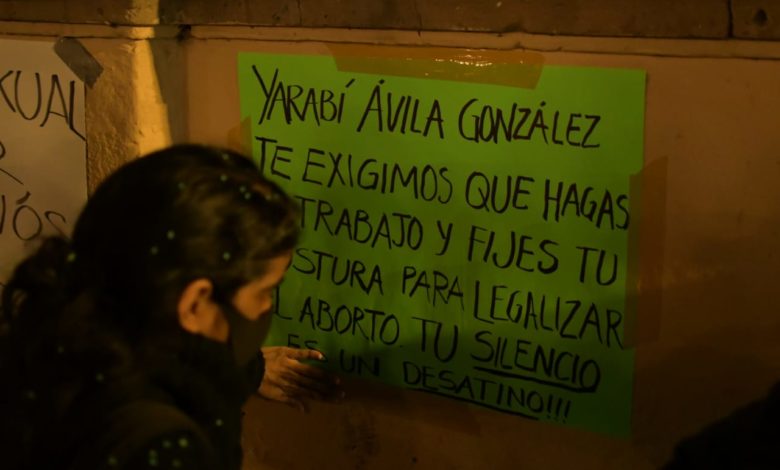 XUAL
R
NÓS
YARABÍ ÁVILA GONZÁLEZ
TE EXIGIMOS QUE HAGAS
TRABAJO Y FIJES TU
STURA PARA LEGALIZAR
L ABORTO. TU SILENCIO
ES UN DESATINO!!!